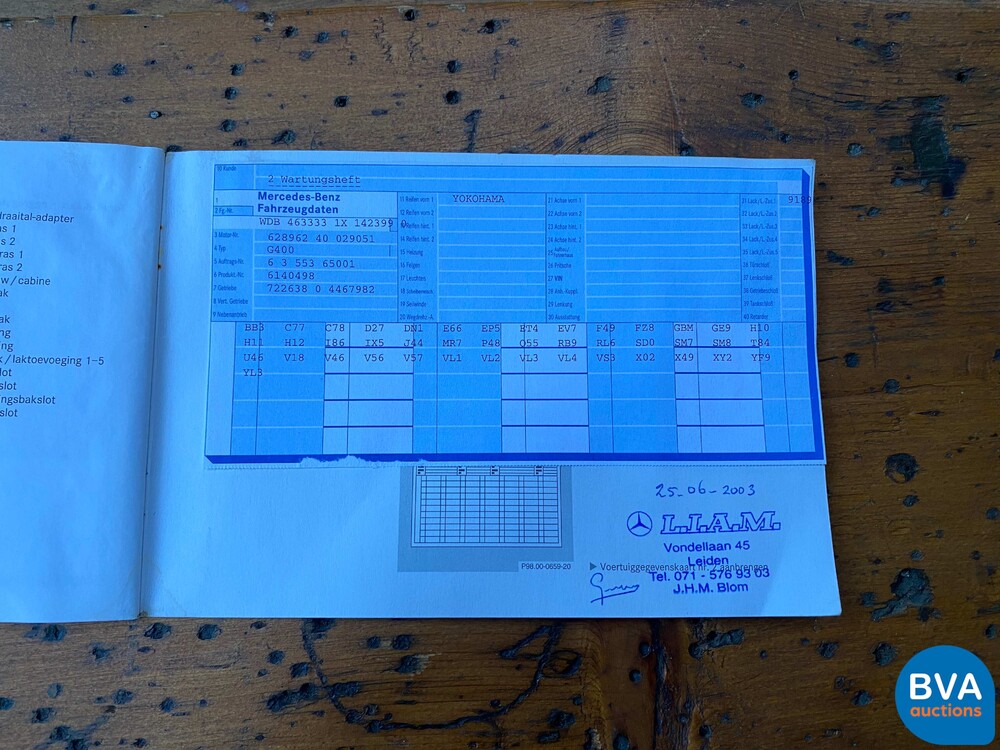 draaital-adapter
as 1
s 2
ras 1
ras 2
w/cabine
ak
ak
ng
ng
k/laktoevoeging 1-5
lot
slot
ngsbakslot
slot
10 Kunde
2 Wartungsheft
1
Mercedes-Benz
Fahrzeugdaten
2 Fg.-Nr.
WDB 463333 1X 142399 0
3 Motor-Nr.
628962 40 029051
4 Typ
G400
5 Auftrags-Nr.
6 3 553 65001
6 Produkt.-Nr.
6140498
7 Getriebe
722638 0 4467982
8 Vert. Getriebe
9 Nebenantrieb
11 Reifen vorn 1 YOKOHAMA
12 Reifen vorn 2
13 Reifen hint. 1
14 Reifen hint. 2
15 Heizung
16 Felgen
17 Leuchten
18 Scheibenwisch.
19 Seilwinde
20 Wegdrehz.-A.
21 Achse vorn 1
22 Achse vorn 2
23 Achse hint. 1
24 Achse hint. 2
26 Pritsche
27 VIN
28 Anh.-Kuppl.
29 Lenkung
30 Ausstattung
31 Lack/L.-Zus.1 9189
32 Lack/L.-Zus.2
33 Lack/L.-Zus.3
34 Lack/L.-Zus.4
35 Lack/L.-Zus.5
36 Türschloß
37 Lenkschloß
38 Getriebeschloß
39 Tankschloß
40 Retarder
BB3 C77 C78 D27 DN1 E66 EP5 ET4 EV7 F49 FZ8 GBM GE9 H10
H11 H12 I86 IX5 J44 MR7 P48 Q55 RB9 RL6 SD0 SM7 SM8 T84
U46 V18 V46 V56 V57 VL1 VL2 VL3 VL4 VS3 X02 X49 XY2 YF9
YL3
P98.00-0659-20
25-06-2003
L.I.A.M.
Vondellaan 45
Leiden
Voertuiggegevenskaart nr. 2 aanbrengen
Tel. 071 - 576 93 03
J.H.M. Blom
BVA
auctions